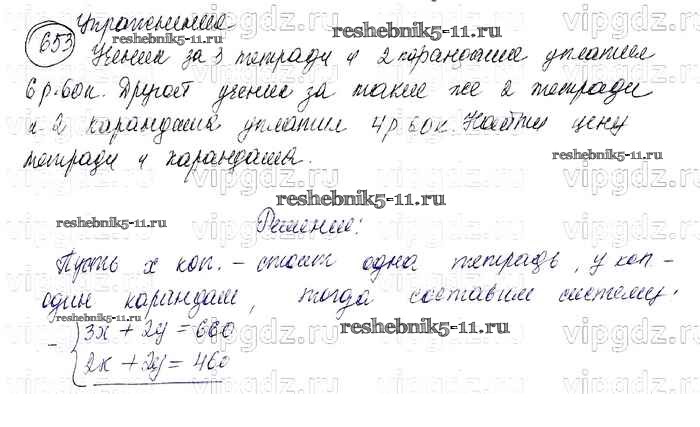 Упражнения
653
Ученик за 3 тетради и 2 карандаша уплатил
6 р. 60 к. Другой ученик за такие же 2 тетради
и 2 карандаша уплатил 4 р 60 к. Найти цену
тетради и карандаша.
Решение:
Пусть x коп. – стоит одна тетрадь, y коп –
один карандаш, тогда составим систему:
3x + 2y = 660
2x + 2y = 460
reshebnik5-11.ru
reshebnik5-11.ru
reshebnik5-11.ru
reshebnik5-11.ru
reshebnik5-11.ru
reshebnik5-11.ru
vipgdz.ru